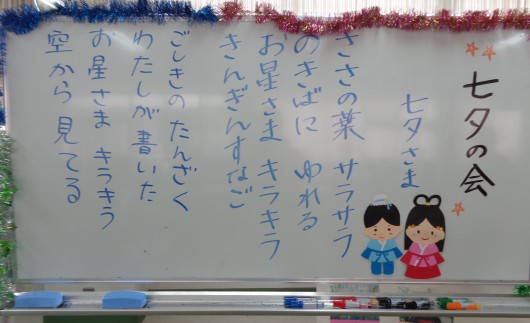 七夕の会
七夕さま
ささの葉 サラサラ
のきばに ゆれる
お星さま キラキラ
きんぎんすなご
ごしきの たんざく
わたしが 書いた
お星さま キラキラ
空から 見てる